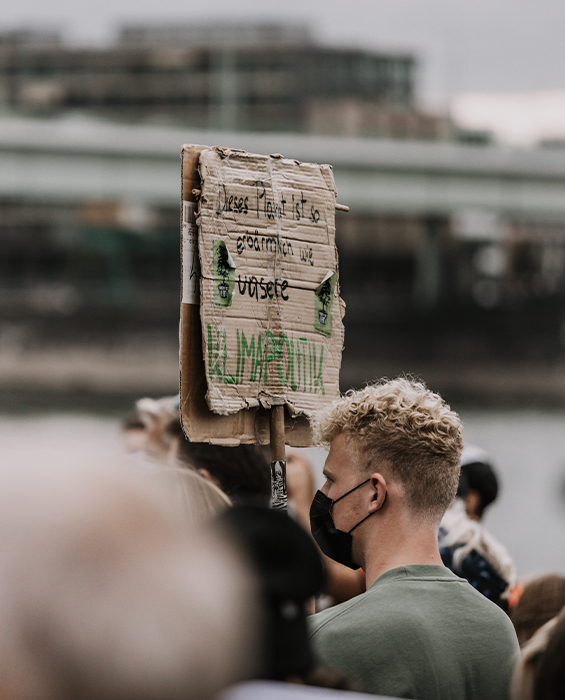 Dieses Plakat ist so
erbärmlich wie
unsere
KLIMAPOLITIK